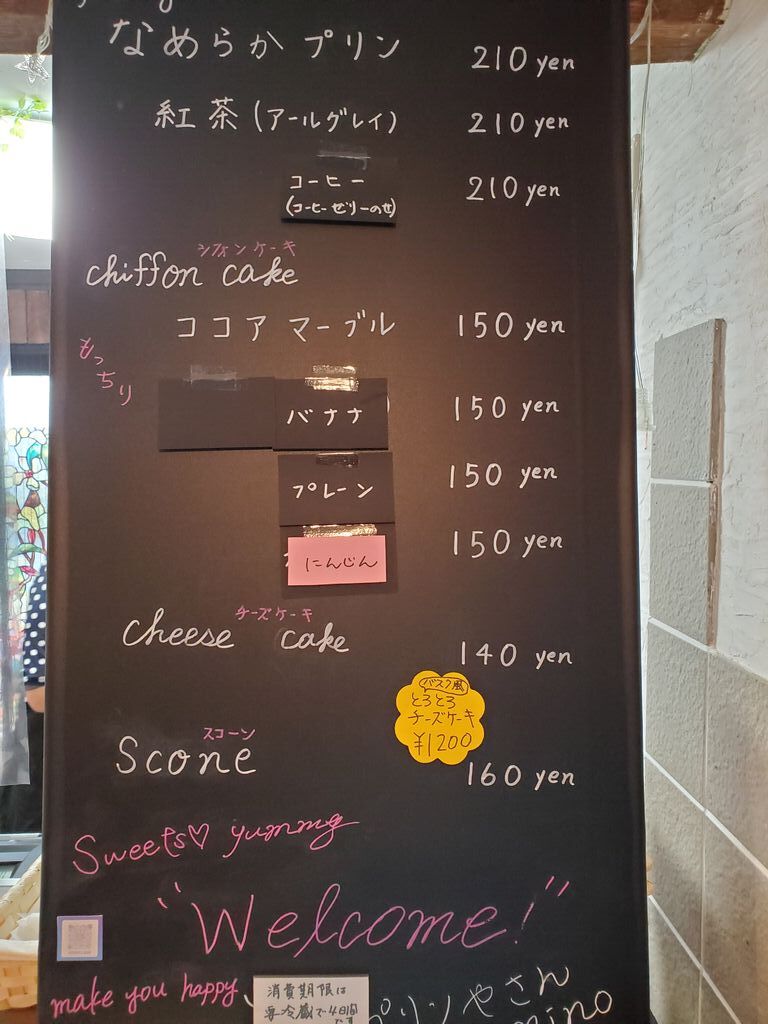 なめらかプリン 210 yen
紅茶(アールグレイ) 210 yen
コーヒー 210 yen
(コーヒーゼリーのせ)
シフォンケーキ
chiffon cake
もっちり
ココアマーブル 150 yen
バナナ 150 yen
プレーン 150 yen
にんじん 150 yen
チーズケーキ
cheese cake 140 yen
バスク風
とろとろ
チーズケーキ
¥1200
スコーン
Scone 160 yen
Sweets♡ yummy
"Welcome!"
make you happy
消費期限は
要冷蔵で4日間
です
プリンやさん